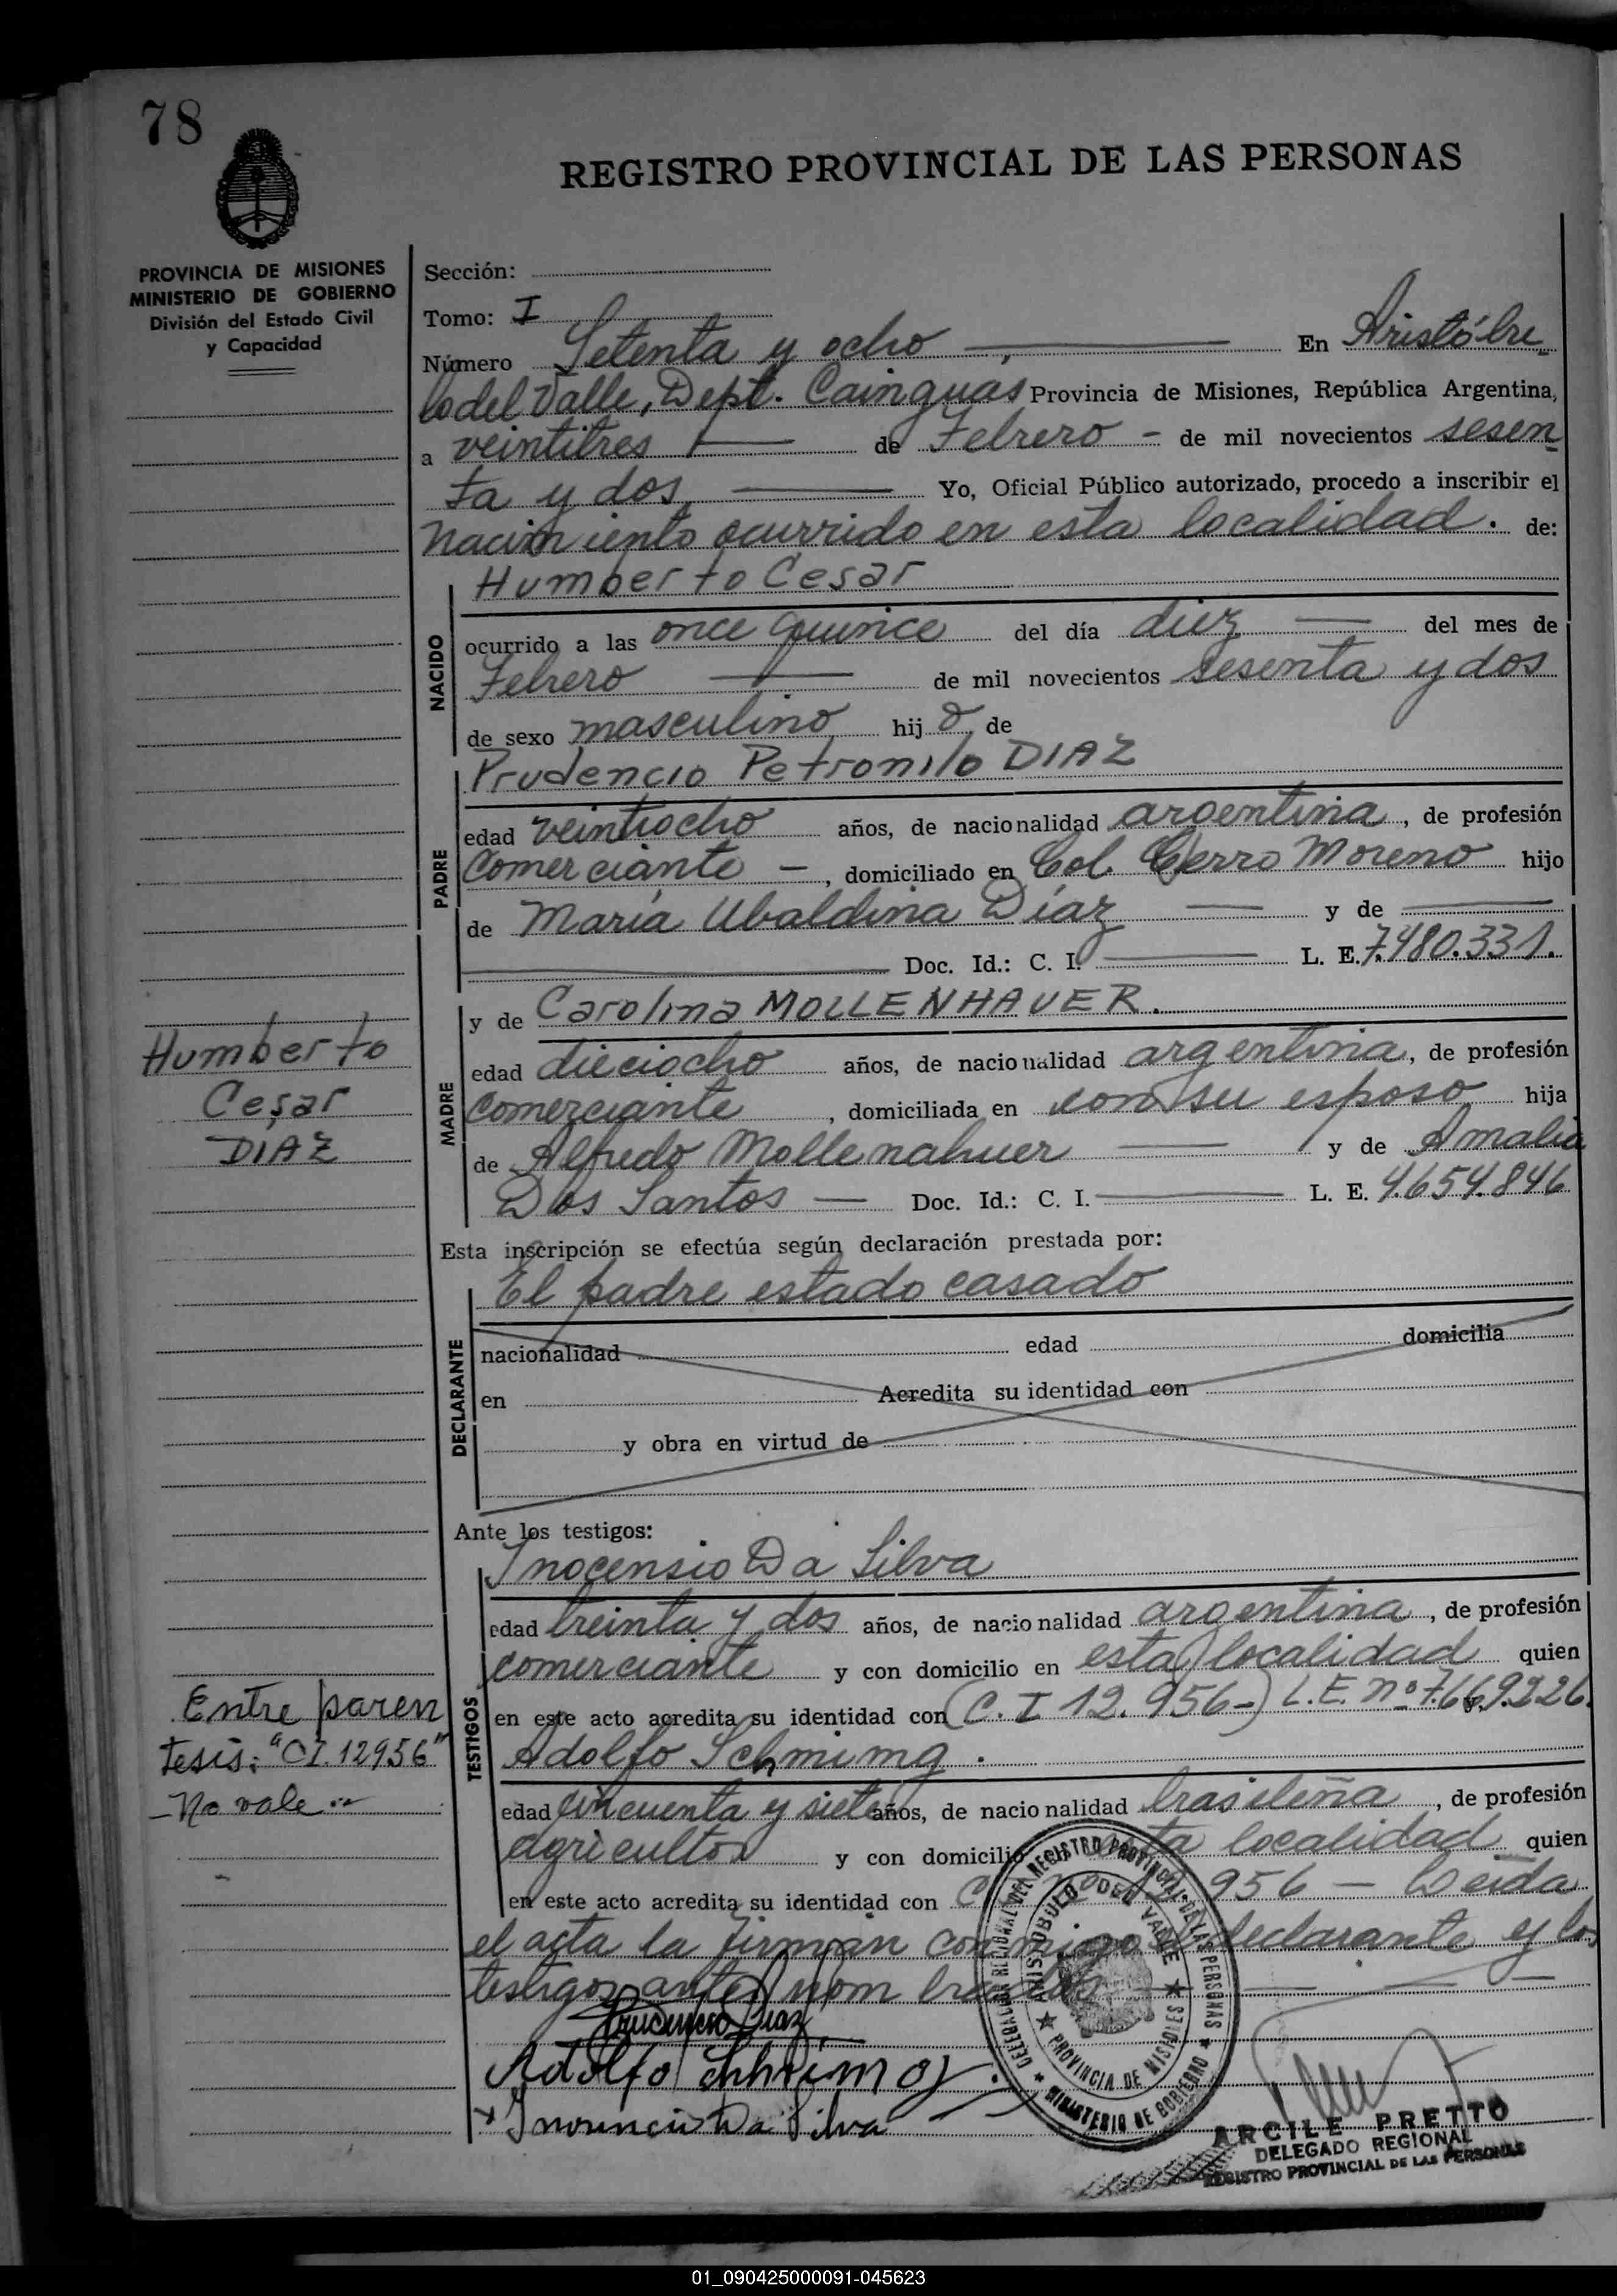 78
REGISTRO PROVINCIAL DE LAS PERSONAS
PROVINCIA DE MISIONES
MINISTERIO DE GOBIERNO
División del Estado Civil
y Capacidad
Sección:
Tomo: I
Número Setenta y ocho — En Aristóbu_
lo del Valle, Dept. Cainguás Provincia de Misiones, República Argentina,
a veintitres — de Febrero - de mil novecientos sesen
ta y dos — Yo, Oficial Público autorizado, procedo a inscribir el
nacimiento ocurrido en esta localidad. de:
NACIDO
Humberto Cesar
ocurrido a las once quince del día diez — del mes de
Febrero — de mil novecientos sesenta y dos
de sexo masculino hij o de
PADRE
Prudencio Petronilo DIAZ
edad veintiocho años, de nacionalidad argentina, de profesión
Comerciante —, domiciliado en Col. Cerro Moreno hijo
de María Ubaldina Díaz — y de —
— Doc. Id.: C. I. — L. E. 7.480.331.
MADRE
y de Carolina MOLLENHAUER.
edad dieciocho años, de nacionalidad argentina, de profesión
Comerciante, domiciliada en con su esposo hija
de Alfredo Mollenahuer — y de Amalia
Dos Santos — Doc. Id.: C. I. — L. E. 4.654.846
Humberto
Cesar
DIAZ
Esta inscripción se efectúa según declaración prestada por:
DECLARANTE
El padre estado casado
nacionalidad edad domicilia
en Acredita su identidad con
y obra en virtud de
Ante los testigos:
TESTIGOS
Inocensio Da Silva
edad treinta y dos años, de nacionalidad argentina, de profesión
comerciante y con domicilio en esta localidad quien
en este acto acredita su identidad con (C. I 12.956-) L.E. nº 7.669.226.
Adolfo Schmimg.
edad cincuenta y siete años, de nacionalidad brasileña, de profesión
agricultor y con domicilio en esta localidad quien
en este acto acredita su identidad con 956 — Leida
el acta la firman conmigo el declarante y los
testigos antes nombrados —
Entre paren
tesis: "CI. 12956"
-No vale.-
Prudencio Diaz
Adolfo
Inosencio Da Silva
DELEGACION REGIONAL DEL REGISTRO PROVINCIAL DE LAS PERSONAS
★ MINISTERIO DE GOBIERNO ★
ARISTOBULO DEL VALLE
★ PROVINCIA DE MISIONES ★
ARCILE PRETTO
DELEGADO REGIONAL
REGISTRO PROVINCIAL DE LAS PERSONAS
01_090425000091-045623